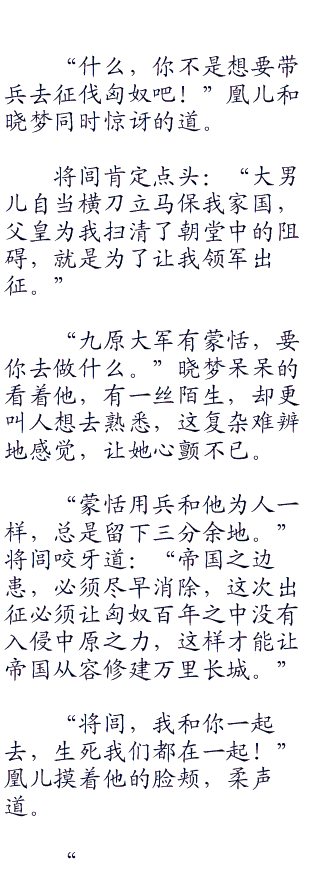 “什么，你不是想要带
兵去征伐匈奴吧！”凰儿和
晓梦同时惊讶的道。
将闾肯定点头：“大男
儿自当横刀立马保我家国，
父皇为我扫清了朝堂中的阻
碍，就是为了让我领军出
征。”
“九原大军有蒙恬，要
你去做什么。”晓梦呆呆的
看着他，有一丝陌生，却更
叫人想去熟悉，这复杂难辨
地感觉，让她心颤不已。
“蒙恬用兵和他为人一
样，总是留下三分余地。”
将闾咬牙道：“帝国之边
患，必须尽早消除，这次出
征必须让匈奴百年之中没有
入侵中原之力，这样才能让
帝国从容修建万里长城。”
“将闾，我和你一起
去，生死我们都在一起！”
凰儿摸着他的脸颊，柔声
道。
“